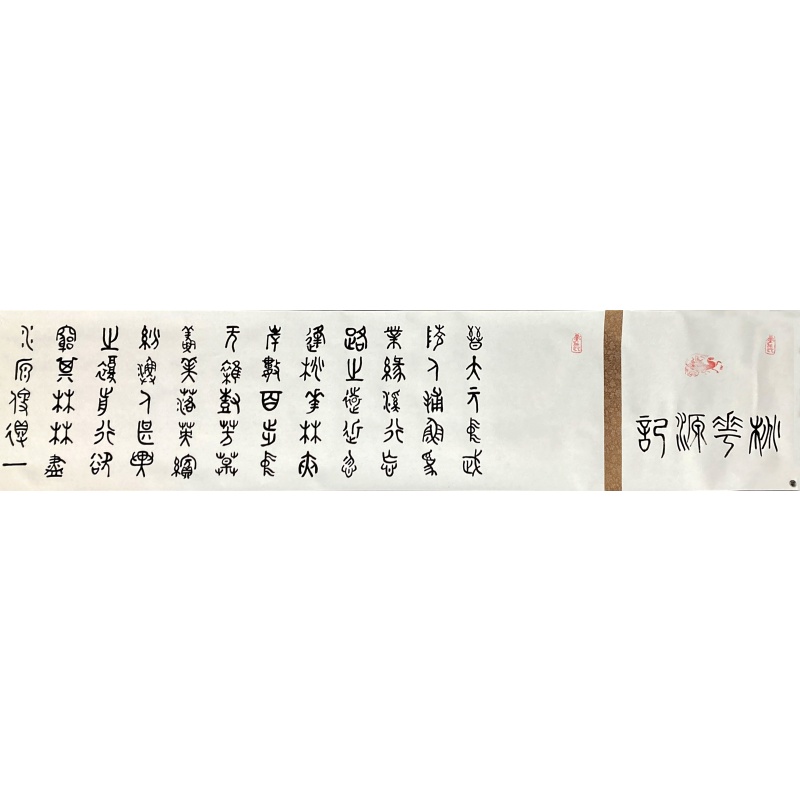 桃華源記
晉太元中武
陵人捕魚為
業緣溪行忘
路之遠近忽
逢桃華林夾
岸數百步中
无雜樹芳草
鮮美落英繽
紛漁人甚異
之復前行欲
窮其林林盡
水源便得一